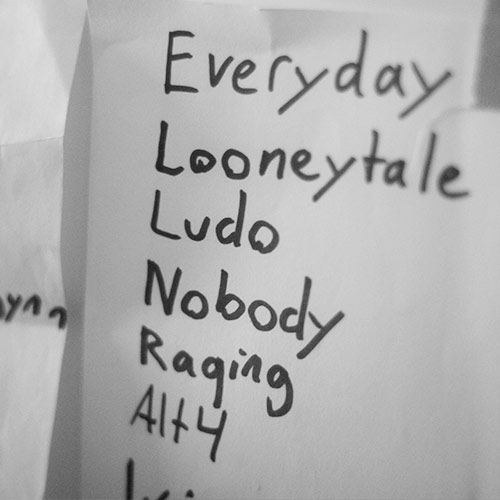 Everyday
Looneytale
Ludo
Nobody
Raging
Alt4